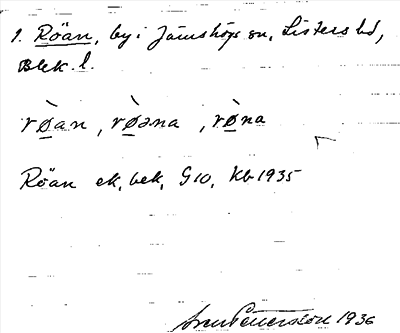 1. Röan, by i Jämshögs sn, Listers hd,
Blek. l.
rø̀an, rø̀əna, rø̀na
Röan ek, bek, G10, Kb 1935
Sven Pettersson 1936